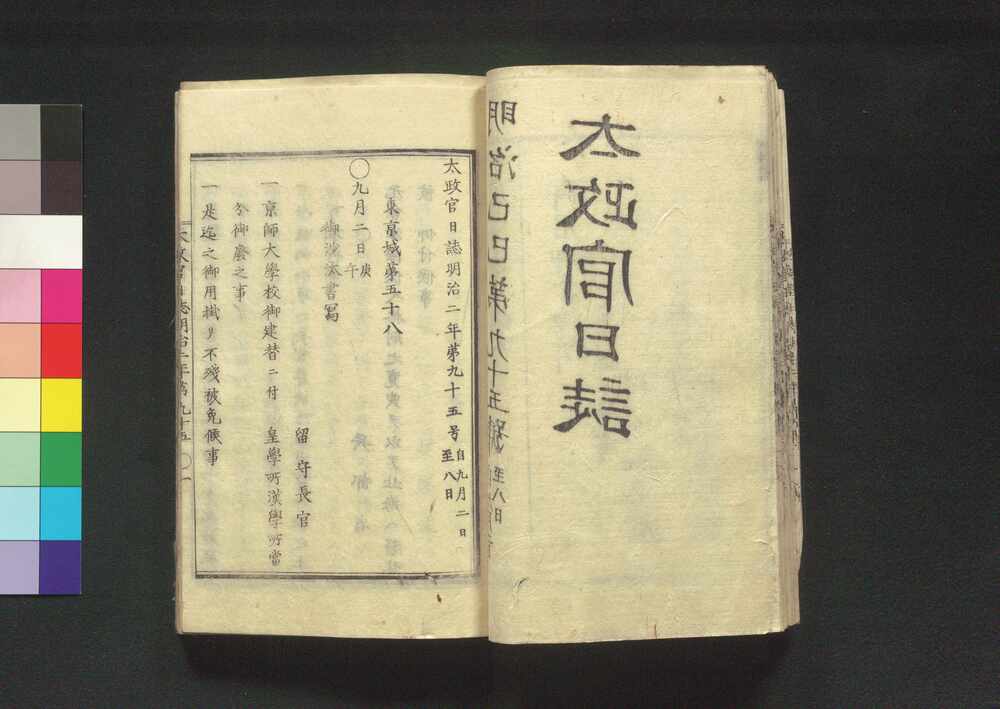 太政官日誌
明治己巳第九十五號
至八日
太政官日誌明治二年第九十五号 自九月二日 至八日
東京城第五十八
〇九月二日庚午
御沙汰書寫
留守長官
一京師大學校御建替ニ付 皇學所漢學所當
分御廢之事
一是迄之御用掛リ不殘被免候事
太政官日誌明治二年第九十五 〇 一